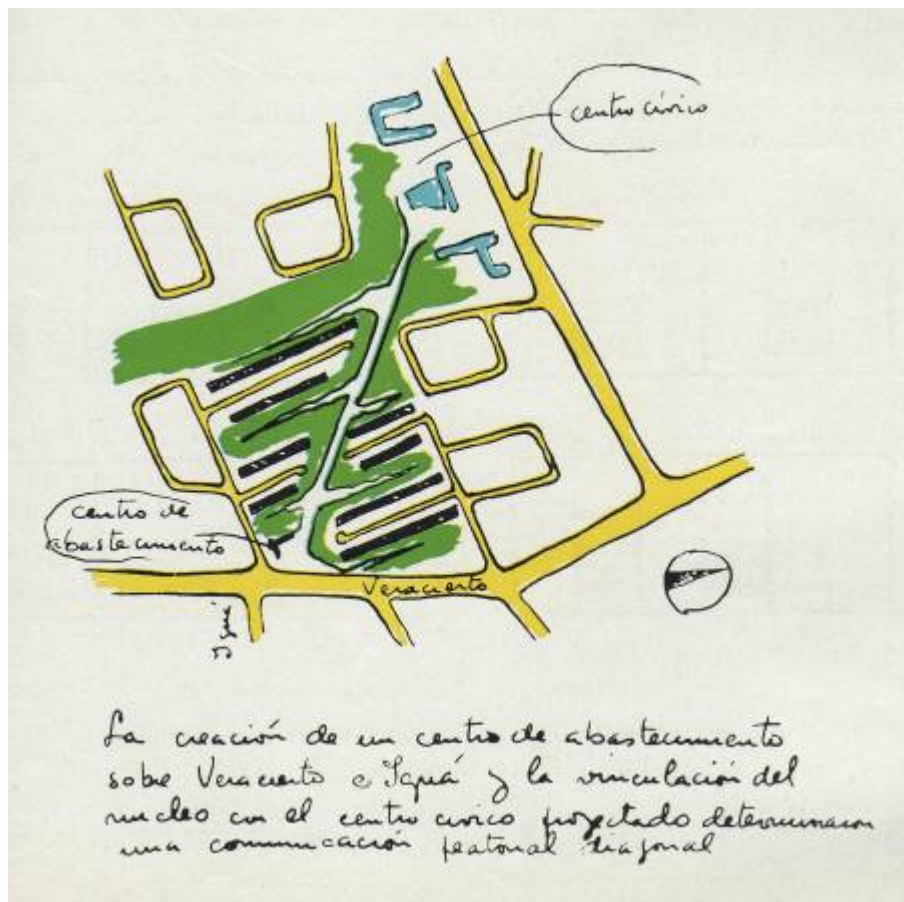 centro cívico
centro de
abastecimiento
Veracierto
Iguá
La creación de un centro de abastecimiento
sobre Veracierto e Iguá y la vinculación del
nucleo con el centro civico proyectado determinaron
una comunicación peatonal diagonal